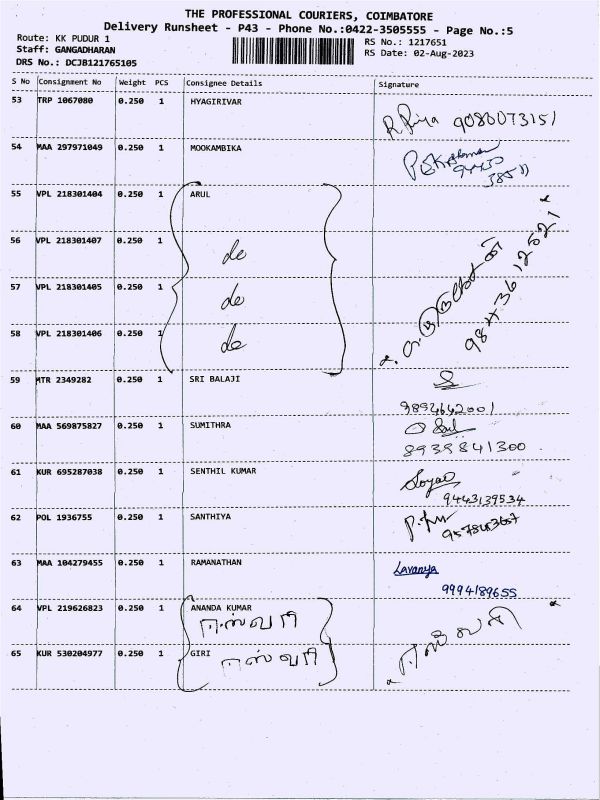 THE PROFESSIONAL COURIERS, COIMBATORE
Delivery Runsheet - P43 - Phone No.:0422-3505555 - Page No.:5
Route: KK PUDUR 1
RS No.: 1217651
Staff: GANGADHARAN
RS Date: 02-Aug-2023
DRS No.: DCJB121765105
S No Consignment No Weight PCS Consignee Details Signature
53 TRP 1067080 0.250 1 HYAGIRIVAR
R Priya 9080073151
54 MAA 297971049 0.250 1 MOOKAMBIKA
55 VPL 218301404 0.250 1 ARUL
56 VPL 218301407 0.250 1 do
57 VPL 218301405 0.250 1 do
58 VPL 218301406 0.250 1 do
9843612521
59 MTR 2349282 0.250 1 SRI BALAJI
9894642001
60 MAA 569875827 0.250 1 SUMITHRA
8939841300
61 KUR 695287038 0.250 1 SENTHIL KUMAR
9443139534
62 POL 1936755 0.250 1 SANTHIYA
63 MAA 104279455 0.250 1 RAMANATHAN
Lavanya
9994189655
64 VPL 219626823 0.250 1 ANANDA KUMAR
ஈஸ்வரி
65 KUR 530204977 0.250 1 GIRI
ஈஸ்வரி
ஈஸ்வரி